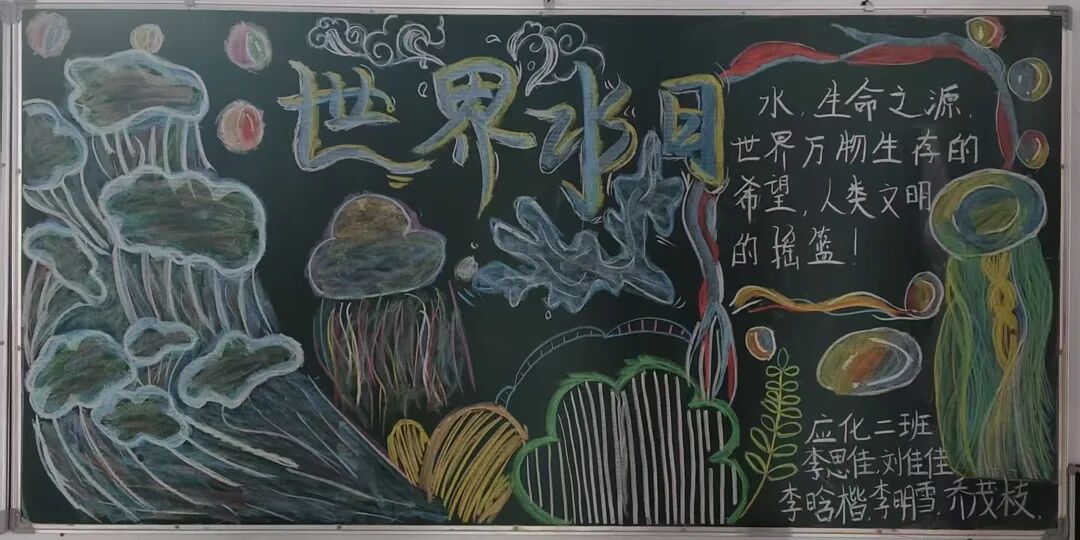 世界水日
水,生命之源,
世界万物生存的
希望,人类文明
的摇篮!
应化二班
李思佳,刘佳佳
李晗楷,李明雪,乔茂枝,